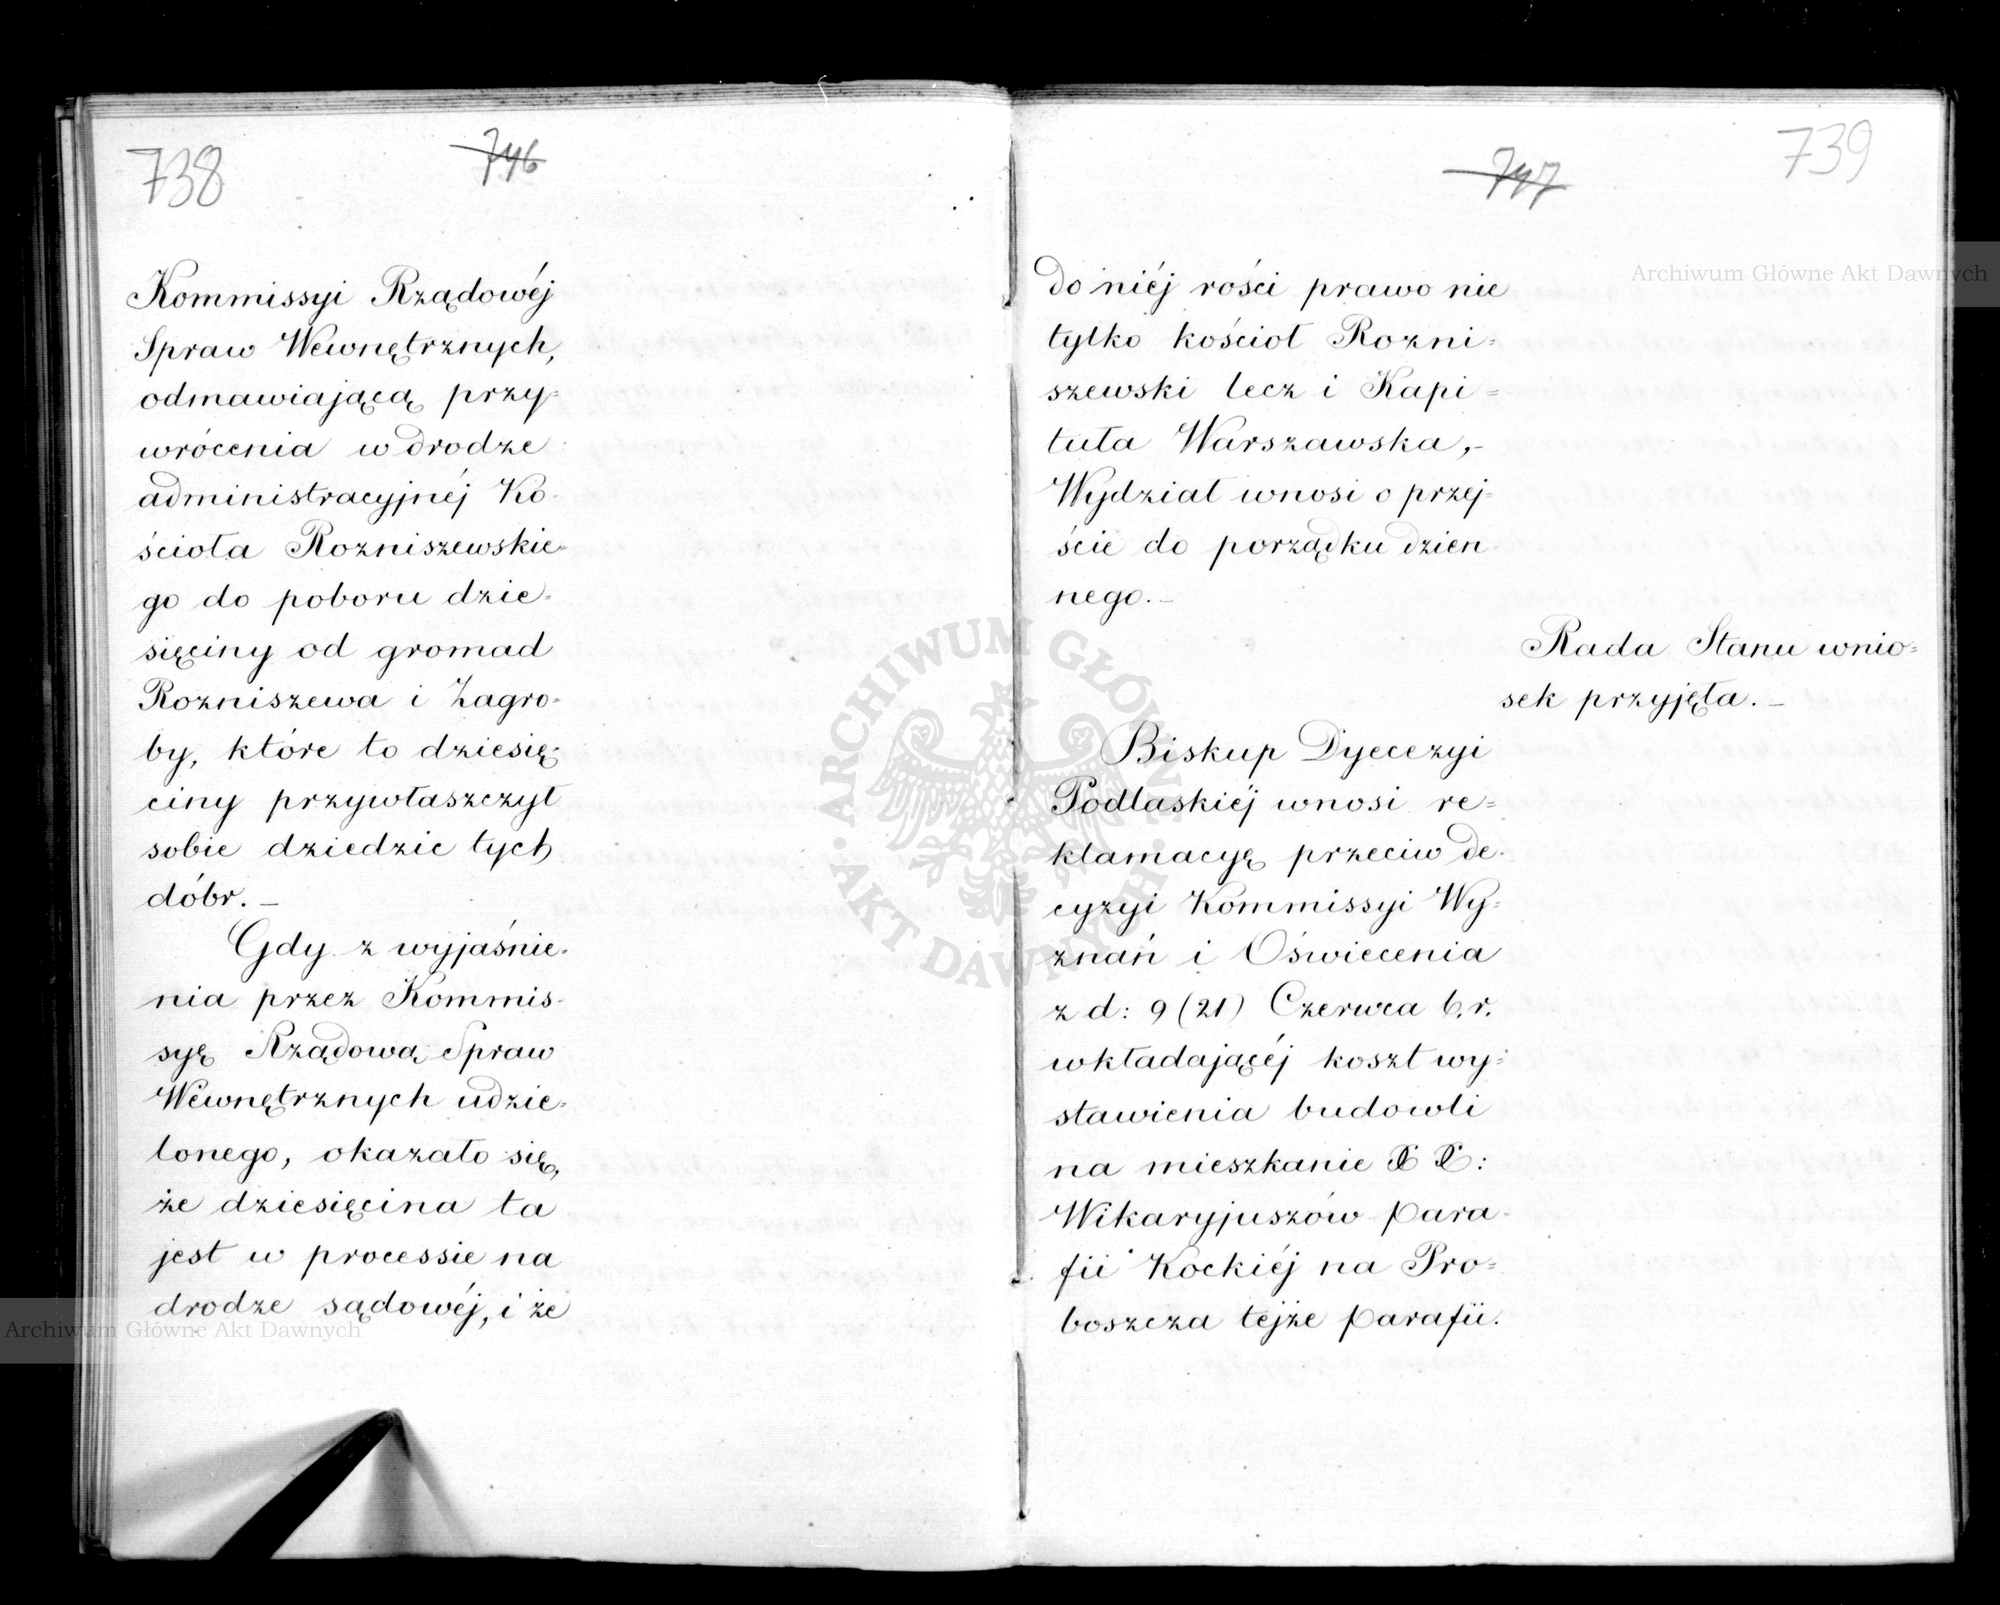 738
746
Kommissyi Rządowéj
Spraw Wewnętrznych,
odmawiającą przy=
wrócenia w drodze
administracyjnéj Ko-
ścioła Rozniszewskie-
go do poboru dzie-
sięciny od gromad
Rozniszewa i Zagro-
by, które to dziesię-
ciny przywłaszczył
sobie dziedzic tych
dóbr. —
Gdy z wyjaśnie-
nia przez Kommis-
syę Rządową Spraw
Wewnętrznych udzie-
lonego, okazało się,
że dziesięcina ta
jest w processie na
drodze sądowéj, i że
747
739
do niéj rości prawo nie
tylko kościoł Rozni=
szewski lecz i Kapi=
tuła Warszawska,—
Wydział wnosi o przej-
ście do porządku dzien
nego. —
Rada Stanu wnio=
sek przyjęła. —
Biskup Dyecezyi
Podlaskiéj wnosi re=
klamacyę przeciw de-
cyzyi Kommissyi Wy-
znań i Oświecenia
z d: 9 (21) Czerwca b. r.
wkładającéj koszt wy-
stawienia budowli
na mieszkanie X X:
Wikaryjuszów para-
fii Kockiéj na Pro=
boszcza tejże parafii.
Archiwum Główne Akt Dawnych
Archiwum Główne Akt Dawnych
ARCHIWUM GŁÓWNE
AKT DAWNYCH